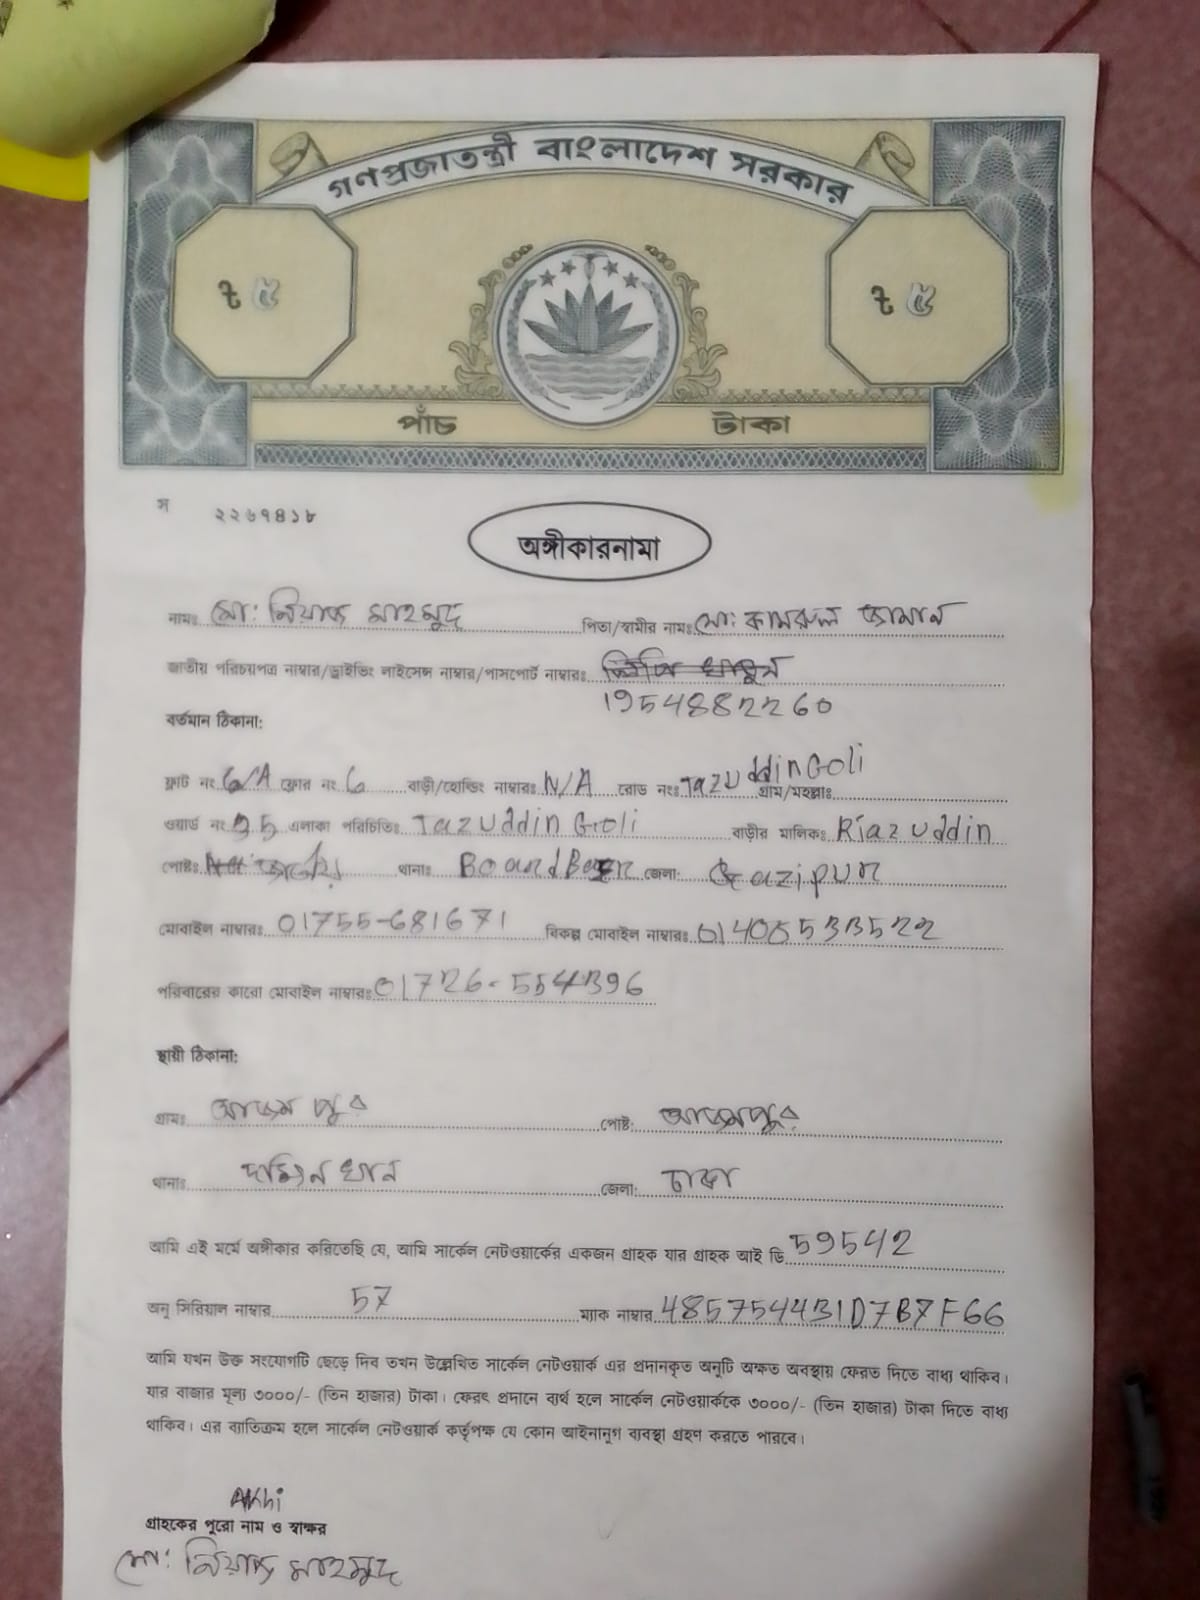 গণপ্রজাতন্ত্রী বাংলাদেশ সরকার
৳ ৫ ৳ ৫
পাঁচ টাকা
স ২২৬৭৪১৮
অঙ্গীকারনামা
নামঃ মো: নিয়াজ মাহমুদ পিতা/স্বামীর নামঃ মো: কামরুল জামান
জাতীয় পরিচয়পত্র নাম্বার/ড্রাইভিং লাইসেন্স নাম্বার/পাসপোর্ট নাম্বারঃ
1954882260
বর্তমান ঠিকানা:
ফ্লাট নং 6/A ফ্লোর নং 6 বাড়ী/হোল্ডিং নাম্বারঃ N/A রোড নংঃ Tazuddin Goli গ্রাম/মহল্লাঃ
ওয়ার্ড নং 35 এলাকা পরিচিতিঃ Tazuddin Goli বাড়ীর মালিকঃ Riazuddin
পোষ্টঃ থানাঃ জেলা: Gazipur
মোবাইল নাম্বারঃ 01755-681671 বিকল্প মোবাইল নাম্বারঃ 01405533522
পরিবারের কারো মোবাইল নাম্বারঃ 01726-554396
স্থায়ী ঠিকানা:
গ্রামঃ আজমপুর পোষ্ট: আজমপুর
থানাঃ দক্ষিনখান জেলা: ঢাকা
আমি এই মর্মে অঙ্গীকার করিতেছি যে, আমি সার্কেল নেটওয়ার্কের একজন গ্রাহক যার গ্রাহক আই ডি 59542
অনু সিরিয়াল নাম্বার 57 ম্যাক নাম্বার 485754431D7B7F66
আমি যখন উক্ত সংযোগটি ছেড়ে দিব তখন উল্লেখিত সার্কেল নেটওয়ার্ক এর প্রদানকৃত অনুটি অক্ষত অবস্থায় ফেরত দিতে বাধ্য থাকিব।
যার বাজার মূল্য ৩০০০/- (তিন হাজার) টাকা। ফেরৎ প্রদানে ব্যর্থ হলে সার্কেল নেটওয়ার্ককে ৩০০০/- (তিন হাজার) টাকা দিতে বাধ্য
থাকিব। এর ব্যাতিক্রম হলে সার্কেল নেটওয়ার্ক কর্তৃপক্ষ যে কোন আইনানুগ ব্যবস্থা গ্রহণ করতে পারবে।
Akhi
গ্রাহকের পুরো নাম ও স্বাক্ষর
মো: নিয়াজ মাহমুদ